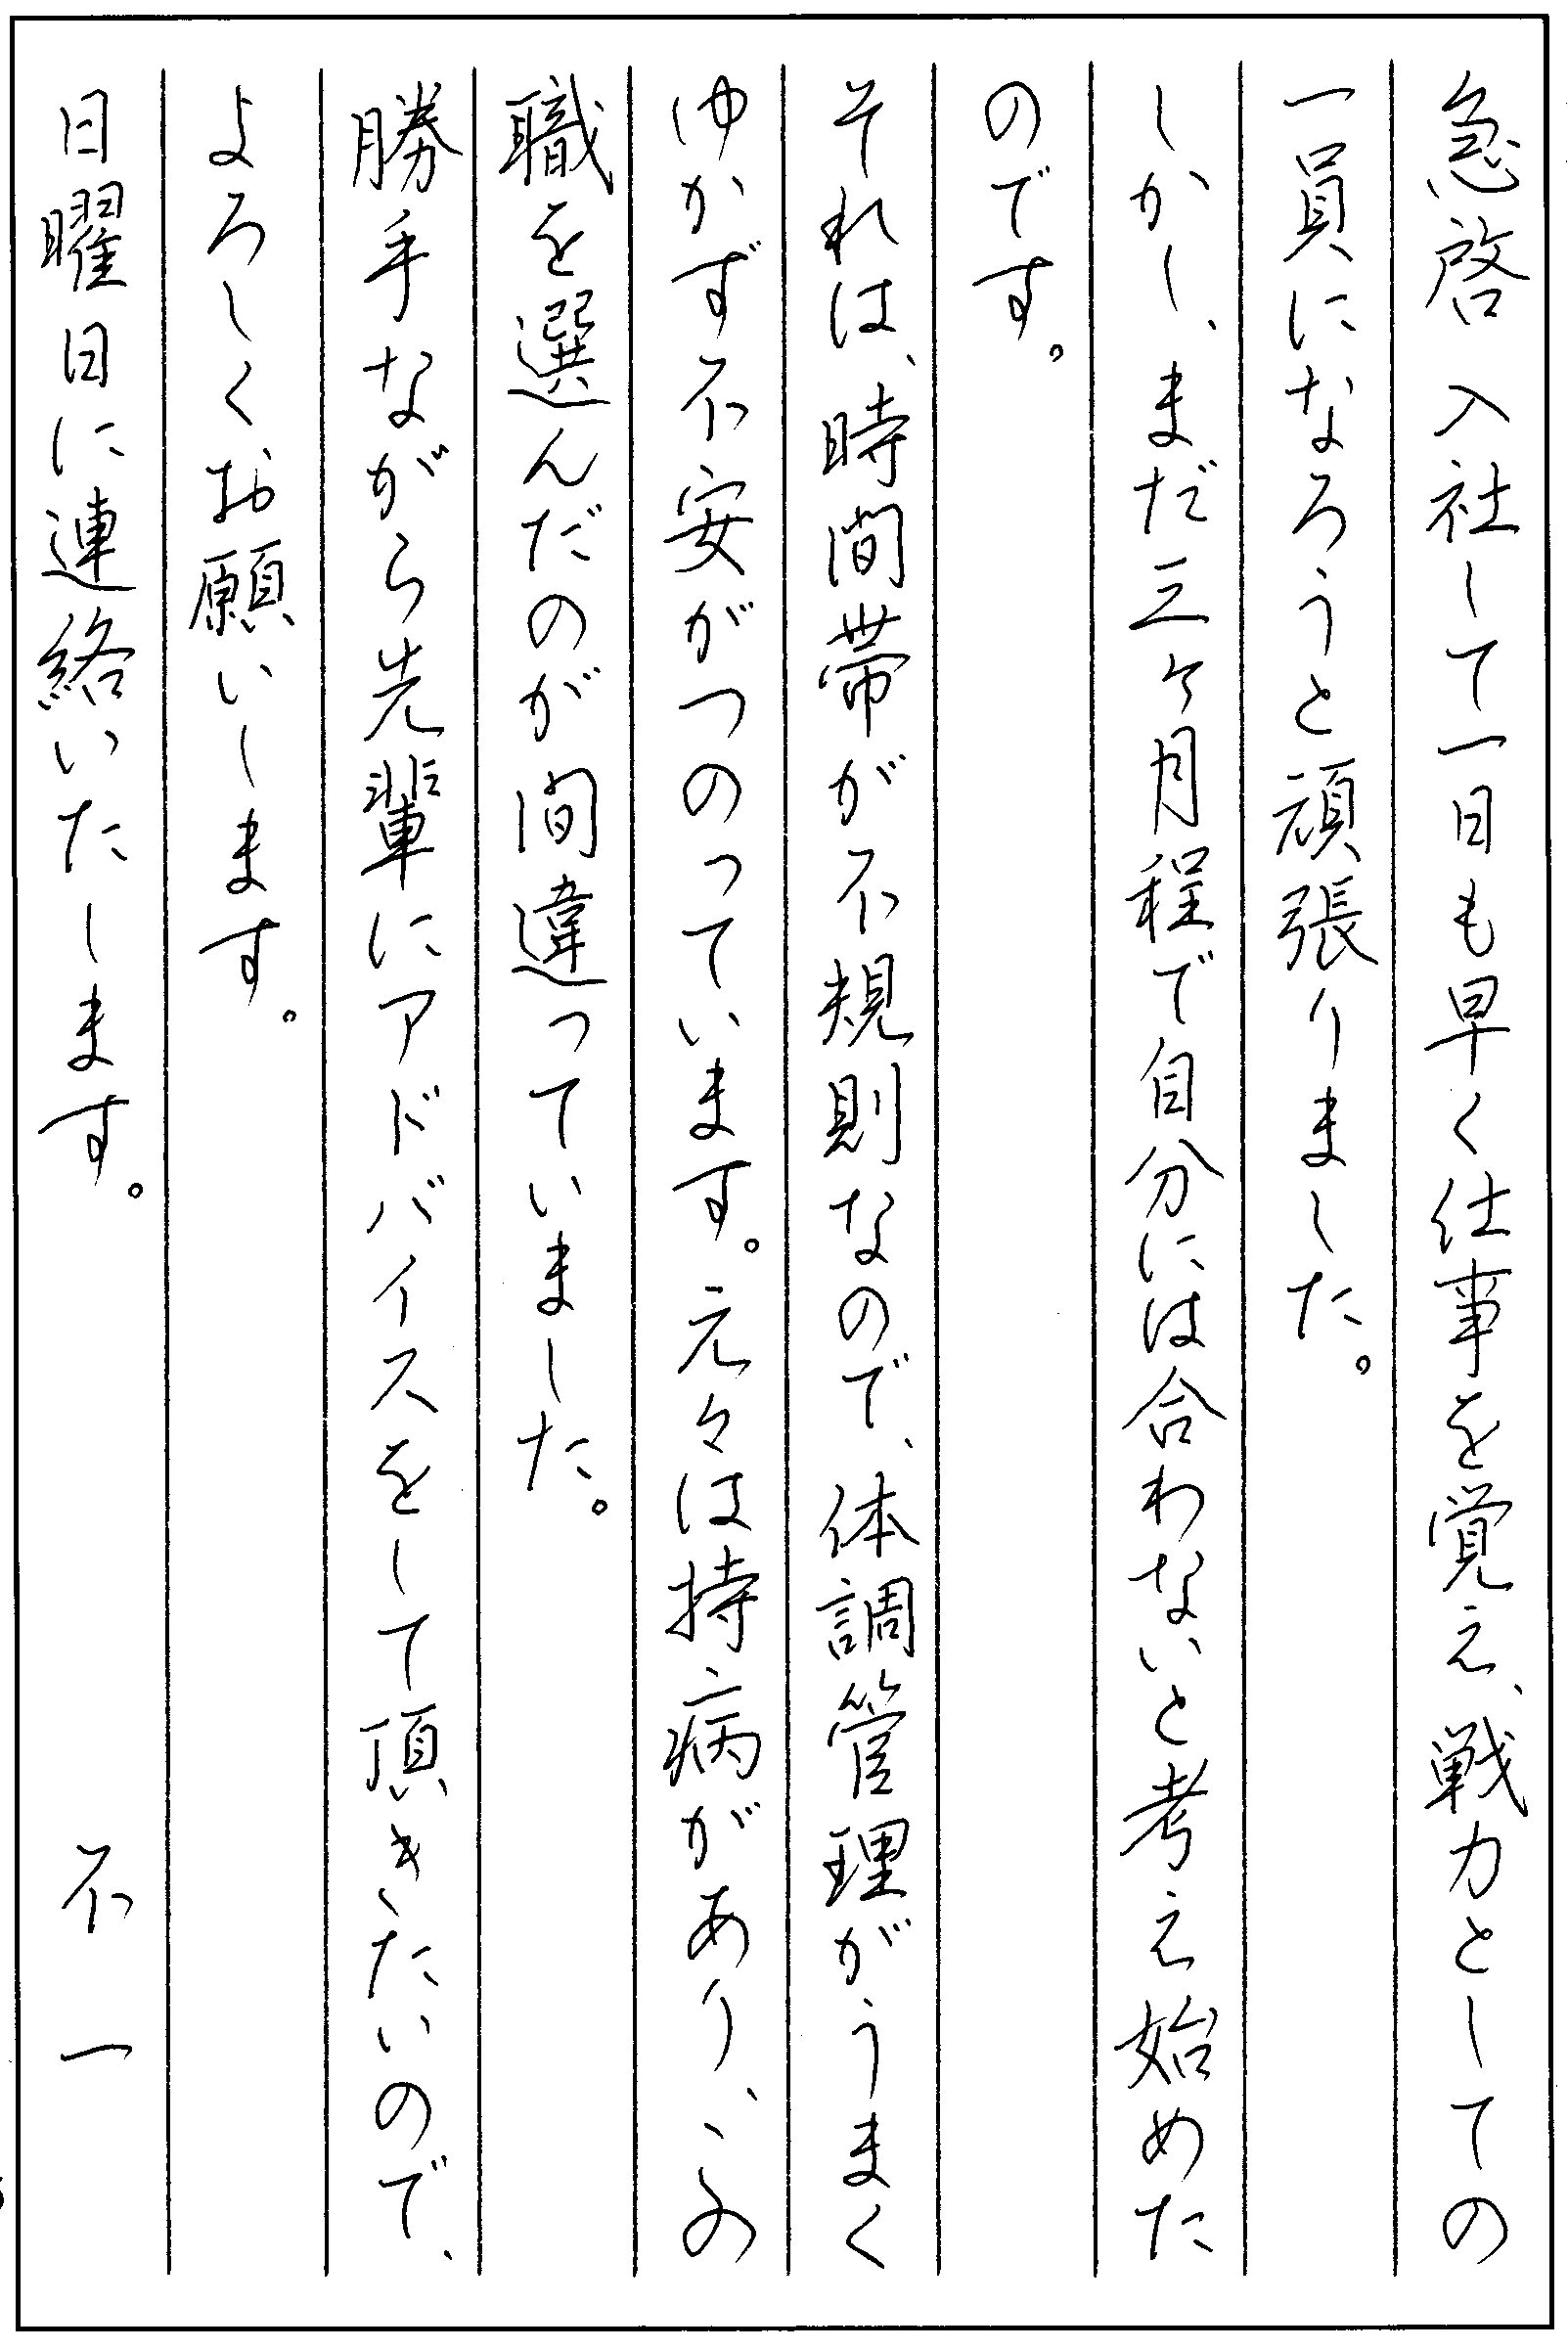 急啓 入社して一日も早く仕事を覚え、戦力としての
一員になろうと頑張りました。
しかし、まだ三ヶ月程で自分には合わないと考え始めた
のです。
それは、時間帯が不規則なので、体調管理がうまく
ゆかず不安がつのっています。元々は持病があり、この
職を選んだのが間違っていました。
勝手ながら先輩にアドバイスをして頂きたいので、
よろしくお願いします。
日曜日に連絡いたします。 不一